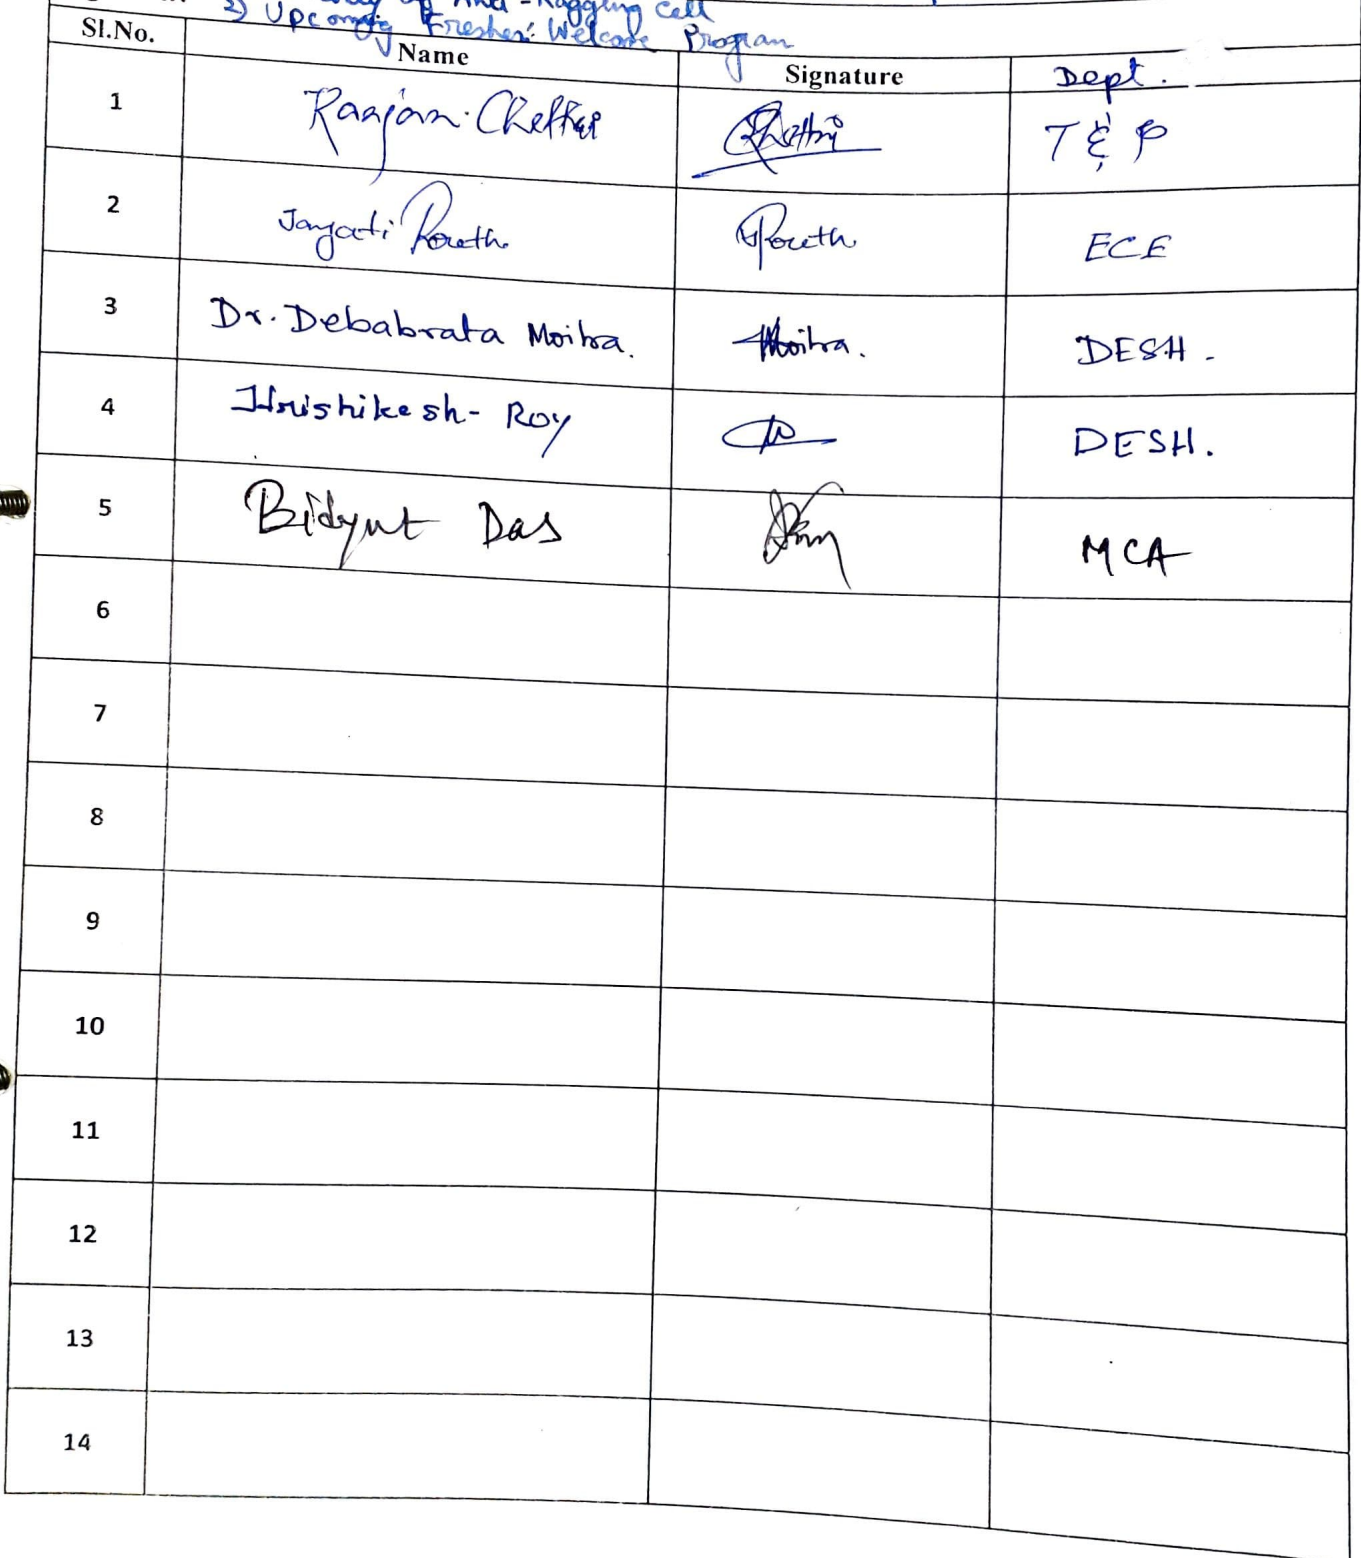 Anti-Ragging Cell
2) Upcoming Freshers' Welcome Program
Sl.No. Name Signature Dept.
1 Raajan Chettri Chettri T & P
2 Jayati Routh Routh ECE
3 Dr. Debabrata Moitra. Moitra. DESH.
4 Hrishikesh Roy DESH.
5 Bidyut Das MCA
6
7
8
9
10
11
12
13
14